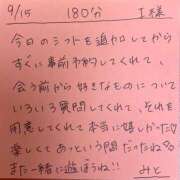 9/15 180分 I様
今日のシフトを追加してから
すぐに事前予約してくれて、
会う前から好きなものについて
いろいろ質問してくれて、それを
用意してくれて本当に嬉しかった
楽しくてあっという間だったね
また一緒に遊ぼうね!! みと